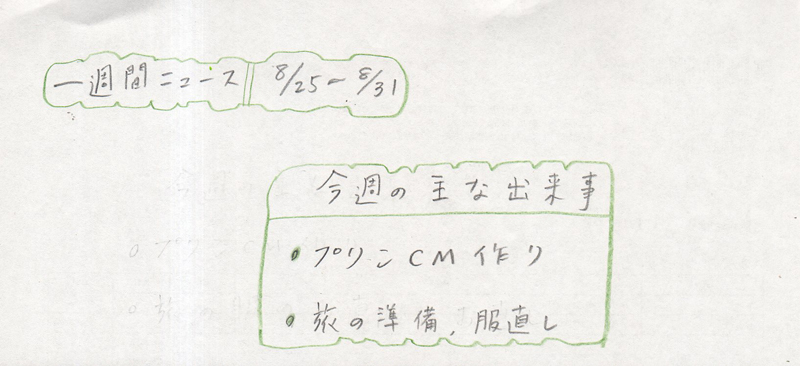 一週間ニュース 8/25～8/31
今週の主な出来事
・プリンCM作り
・旅の準備、服直し